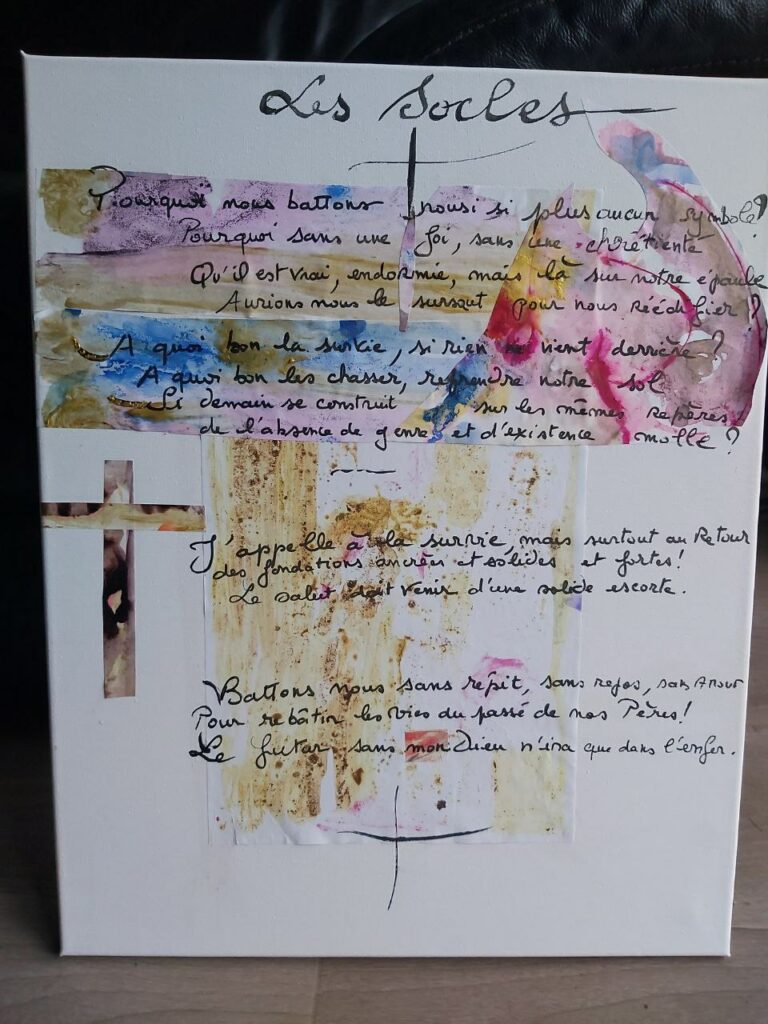 Les Socles
Pourquoi nous battons nous si plus aucun symbole?
Pourquoi sans une foi, sans une chrétienté
Qu'il est vrai, endormie, mais là sur notre épaule
Aurions nous le sursaut pour nous Réédifier?
A quoi bon la survie, si rien ne vient derrière?
A quoi bon les chasser, reprendre notre sol
Si demain se construit sur les mêmes Repères
de l'absence de genre, et d'existence molle?
J'appelle à la survie, mais surtout au Retour
des fondations ancrées et solides et fortes!
Le salut doit venir d'une solide escorte.
Battons nous sans répit, sans repos, sans Amour
Pour rebâtir les vies du passé de nos Pères!
Le futur sans mon Dieu n'ira que dans l'enfer.